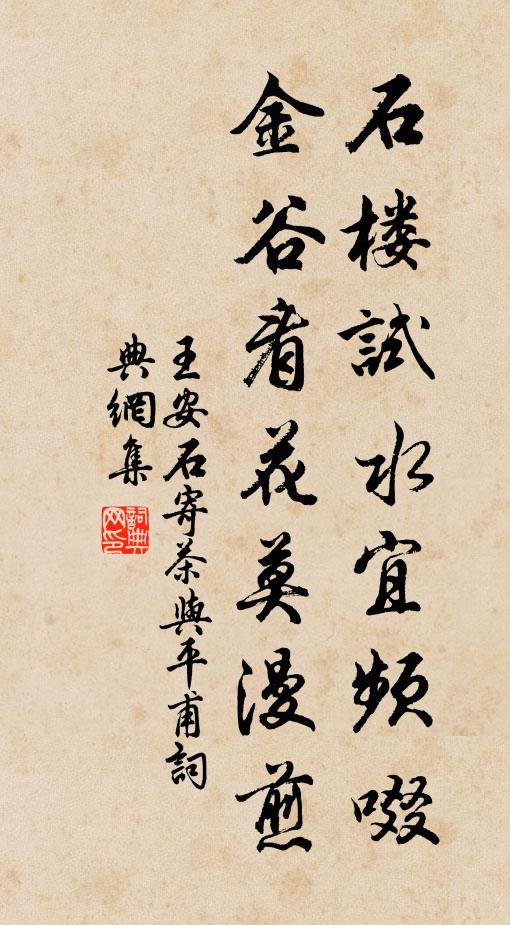 石楼試水宜頻啜
金谷看花莫漫煎
王安石寄茶與平甫詞
典網集
詞典網印